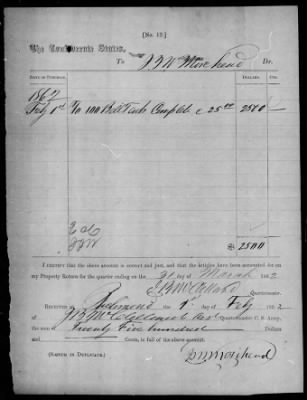 [No. 12.]
The Confederate States,
To J R W Morehead Dr.
DATE OF PURCHASE. DOLLARS. CTS.
1862
Feby 1st To 100 Bell Tents Complete @ 25 00 2500
$ 2500
I CERTIFY that the above account is correct and just, and that the articles have been accounted for on
my Property Return for the quarter ending on the 31 day of March 1862
Quartermaster.
RECEIVED at Richmond the 1st day of Feby 1862
of Quartermaster C. S. Army,
the sum of Twenty Five hundred Dollars
and Cents, in full of the above account.
(SIGNED IN DUPLICATE.)
Morehead